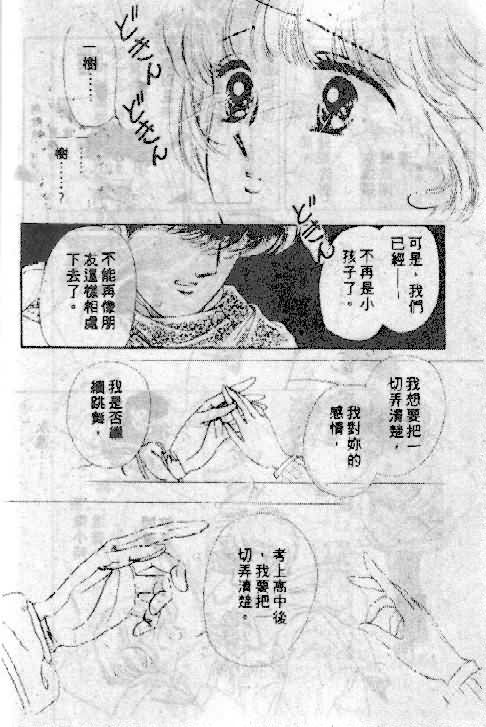 どきん
一樹……
どきん
……
樹……？
どきん
可是，我們
已經——
不再是小
孩子了。
不能再像朋
友這樣相處
下去了。
我想要把一
切弄清楚，
我對妳的
感情，
我是否繼
續跳舞，
考上高中後
，我要把一
切弄清楚。